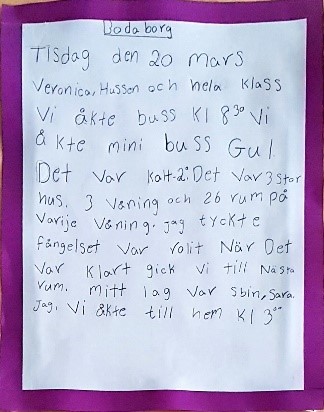 Bodaborg
Tisdag den 20 mars
Veronica, Hussen och hela klass
Vi åkte buss Kl 8³⁰ Vi
åkte mini buss Gul.
Det var kalt-2° Det var 3 stor
hus. 3 våning och 26 rum på
varije våning. jag tyckte
fängelset var rolit När Det
var klart gick vi till Nästa
rum. mitt lag var sbin, Sara.
Jag, Vi åkte till hem Kl 3⁰⁰